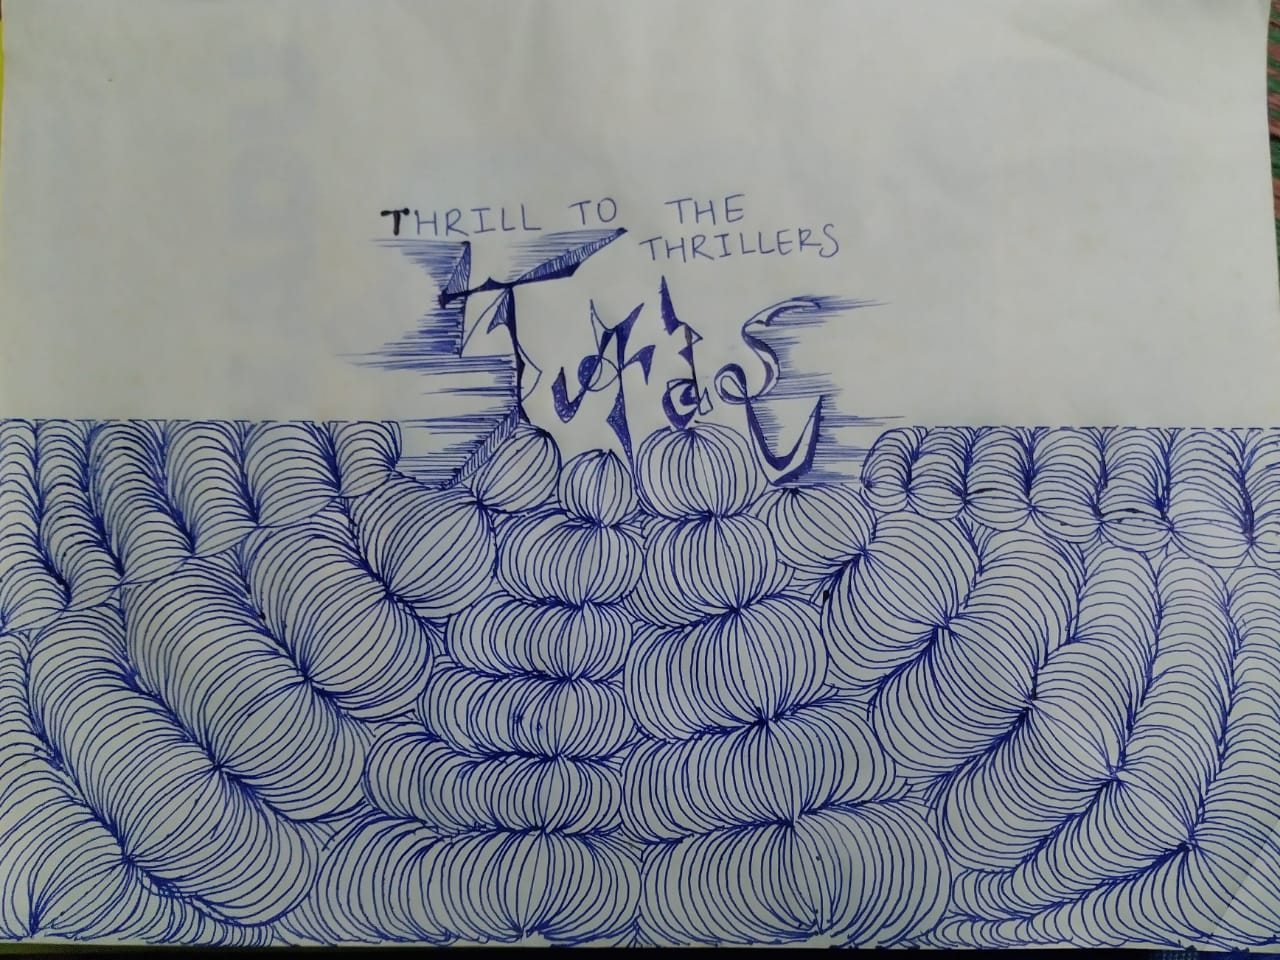 THRILL TO THE
THRILLERS